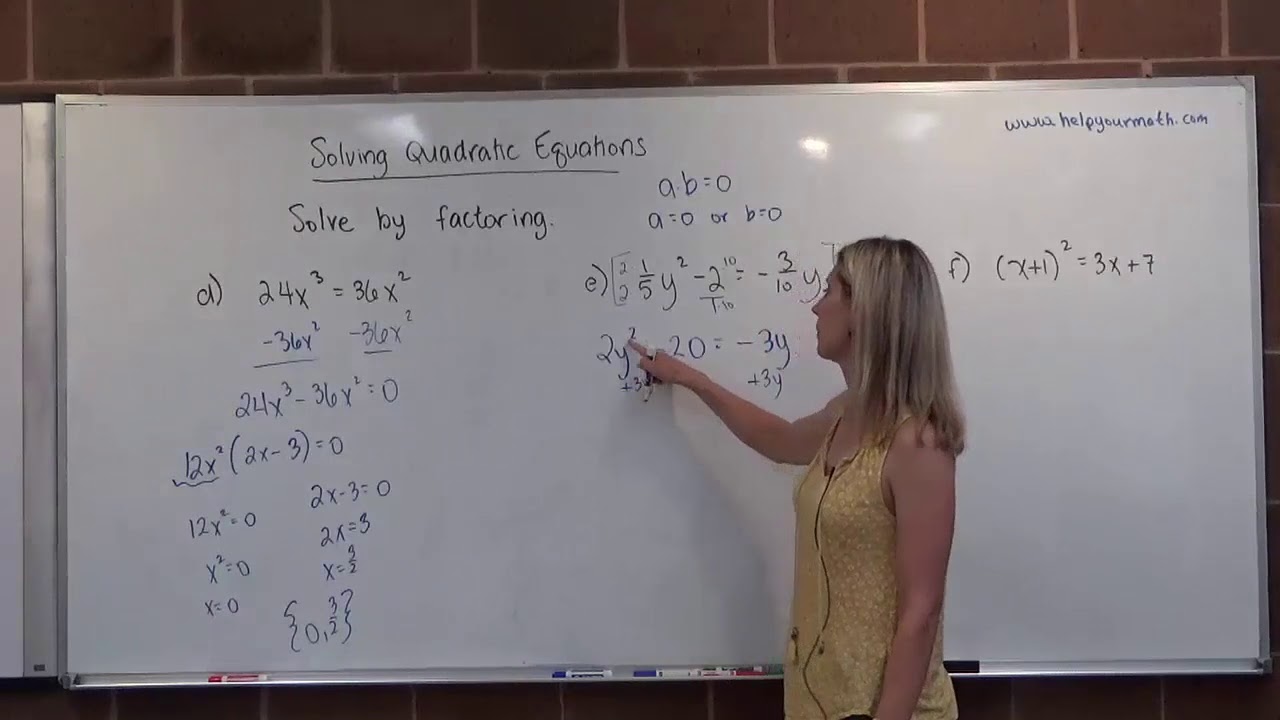 www.helpyourmath.com
Solving Quadratic Equations
a·b=0
Solve by factoring.
a=0 or b=0
d) 24x³ = 36x²
-36x² -36x²
24x³ - 36x² = 0
12x²(2x - 3) = 0
2x-3=0
12x²=0
2x=3
x²=0
x=3/2
x=0
{0, 3/2}
e) [2/2 1/5 y² - 2/1 10/10 = - 3/10 y
2y² - 20 = -3y
+3y +3y
f) (x+1)² = 3x+7